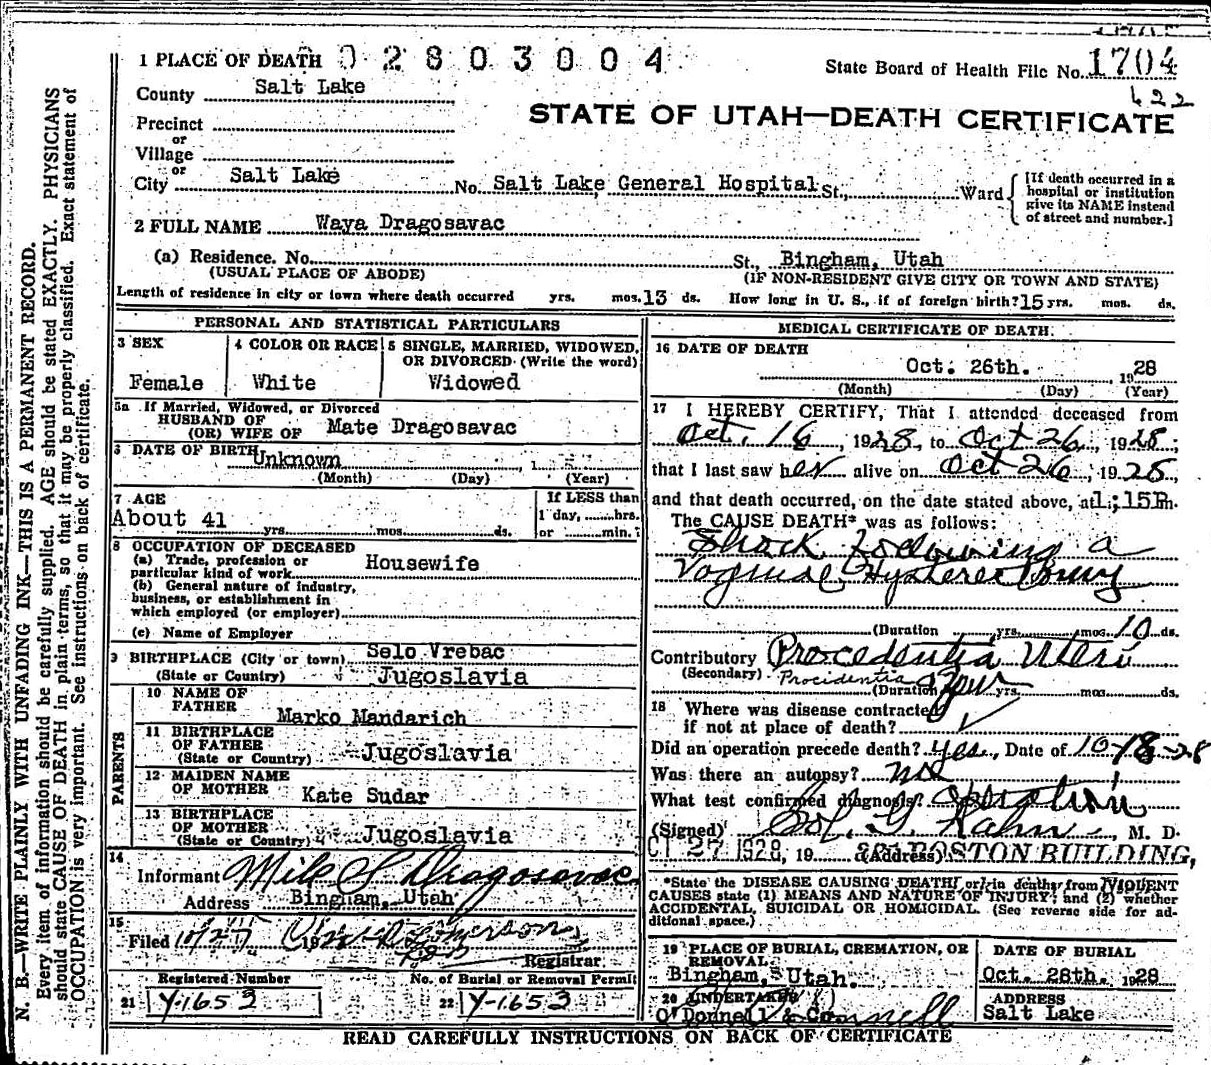 1 PLACE OF DEATH 0 2 8 0 3 0 0 4
State Board of Health File No. 1704
622
County Salt Lake
STATE OF UTAH—DEATH CERTIFICATE
Precinct
or
Village
or
City Salt Lake No. Salt Lake General Hospital St., Ward
[If death occurred in a hospital or institution give its NAME instead of street and number.]
2 FULL NAME Waya Dragosavac
(a) Residence. No. St., Bingham, Utah
(USUAL PLACE OF ABODE) (IF NON-RESIDENT GIVE CITY OR TOWN AND STATE)
Length of residence in city or town where death occurred yrs. mos. 13 ds. How long in U. S., if of foreign birth? 15 yrs. mos. ds.
PERSONAL AND STATISTICAL PARTICULARS
3 SEX
Female
4 COLOR OR RACE
White
5 SINGLE, MARRIED, WIDOWED, OR DIVORCED (Write the word)
Widowed
5a If Married, Widowed, or Divorced
HUSBAND OF
(OR) WIFE OF Mate Dragosavac
6 DATE OF BIRTH Unknown
(Month) (Day) (Year)
7 AGE
About 41 yrs. mos. ds.
If LESS than
1 day, hrs.
or min.
8 OCCUPATION OF DECEASED
(a) Trade, profession or
particular kind of work Housewife
(b) General nature of industry,
business, or establishment in
which employed (or employer)
(c) Name of Employer
9 BIRTHPLACE (City or town) Selo Vrebac
(State or Country) Jugoslavia
PARENTS
10 NAME OF
FATHER
Marko Mandarich
11 BIRTHPLACE
OF FATHER
(State or Country) Jugoslavia
12 MAIDEN NAME
OF MOTHER Kate Sudar
13 BIRTHPLACE
OF MOTHER
(State or Country) Jugoslavia
14
Informant Mile S Dragosavac
Address Bingham, Utah
15
Filed 10/27 19
Registrar
Registered Number
21 Y-1653
No. of Burial or Removal Permit
22 Y-1653
MEDICAL CERTIFICATE OF DEATH.
16 DATE OF DEATH
Oct. 26th. 1928
(Month) (Day) (Year)
17 I HEREBY CERTIFY, That I attended deceased from
Oct. 16, 1928, to Oct 26, 1928;
that I last saw her alive on Oct 26, 1928,
and that death occurred, on the date stated above, at 1;15P m.
The CAUSE DEATH* was as follows:
Shock following a
Vaginal Hysterectomy
(Duration yrs. mos. 10 ds.
Contributory Procedentia Uteri
(Secondary) Procidentia
(Duration yrs. mos. ds.
18 Where was disease contracted
if not at place of death?
Did an operation precede death? yes, Date of 10-18-28
Was there an autopsy? no
What test confirmed diagnosis? Operation
(Signed) Sol. G. Kahn, M. D.
OCT 27 1928, 19 (Address) BOSTON BUILDING,
*State the DISEASE CAUSING DEATH, or in deaths from VIOLENT
CAUSES state (1) MEANS AND NATURE OF INJURY; and (2) whether
ACCIDENTAL, SUICIDAL OR HOMICIDAL. (See reverse side for ad-
ditional space.)
19 PLACE OF BURIAL, CREMATION, OR
REMOVAL
Bingham, Utah.
DATE OF BURIAL
Oct. 28th. 1928
20 UNDERTAKER
O'Donnell & Co.
ADDRESS
Salt Lake
READ CAREFULLY INSTRUCTIONS ON BACK OF CERTIFICATE
N. B.—WRITE PLAINLY WITH UNFADING INK—THIS IS A PERMANENT RECORD.
Every item of information should be carefully supplied. AGE should be stated EXACTLY. PHYSICIANS
should state CAUSE OF DEATH in plain terms, so that it may be properly classified. Exact statement of
OCCUPATION is very important. See instructions on back of certificate.